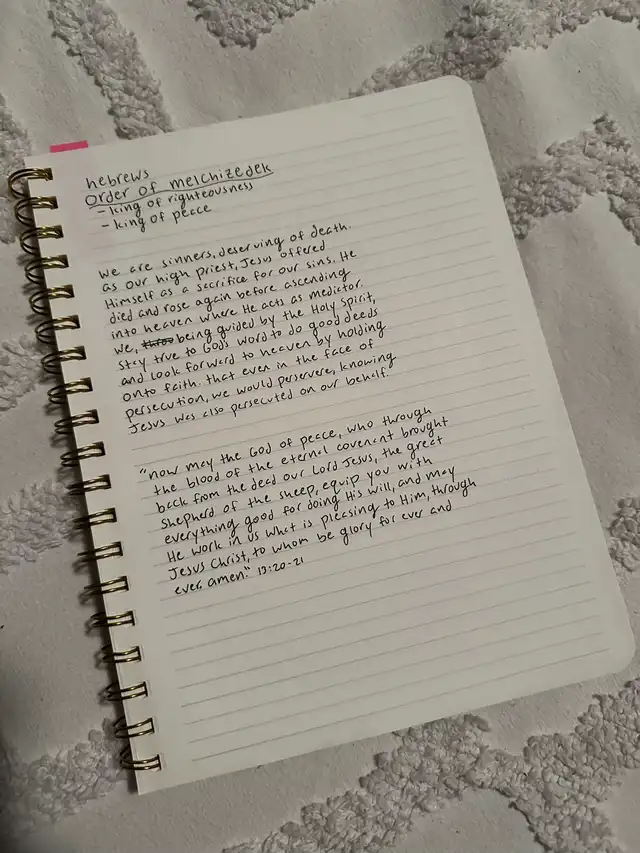 hebrews
Order of melchizedek
- king of righteousness
- king of peace
we are sinners, deserving of death.
as our high priest, Jesus offered
Himself as a sacrifice for our sins. He
died and rose again before ascending
into heaven where He acts as mediator.
we, being guided by the Holy Spirit,
stay true to God's word to do good deeds
and look forward to heaven by holding
onto faith. that even in the face of
persecution, we would perservere, knowing
Jesus was also persecuted on our behalf.
"now may the God of peace, who through
the blood of the eternal covenant brought
back from the dead our Lord Jesus, the great
shepherd of the sheep, equip you with
everything good for doing His will, and may
He work in us what is pleasing to Him, through
Jesus Christ, to whom be glory for ever and
ever. amen." 13:20-21